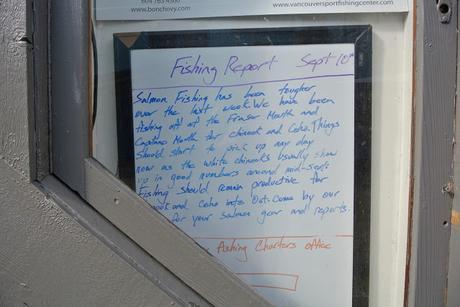 604 763 4900
www.bonchovy.com
www.vancouversportfishingcenter.com
Fishing Report Sept 10th
Salmon Fishing has been tougher
over the last week. We have been
fishing off of the Fraser Mouth and
Capilano Mouth for chinook and Coho. Things
Should start to pick up any day
now as the white chinooks usually show
up in good numbers around mid-sept.
Fishing should remain productive for
nook and coho into Oct. Come by our
for your salmon gear and reports.
fishing Charters office